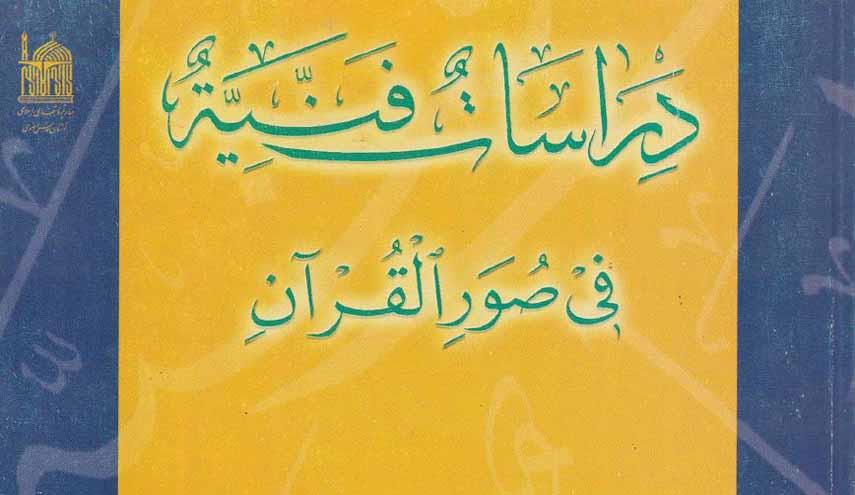 دِرَاسَاتٌ فَنِّيَّةٌ
فِيْ صُوَرِ ٱلْقُرْآنِ